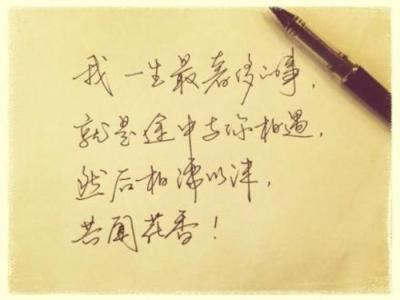 我一生最奢侈的事，
就是途中与你相遇，
然后相濡以沫，
共闻花香！